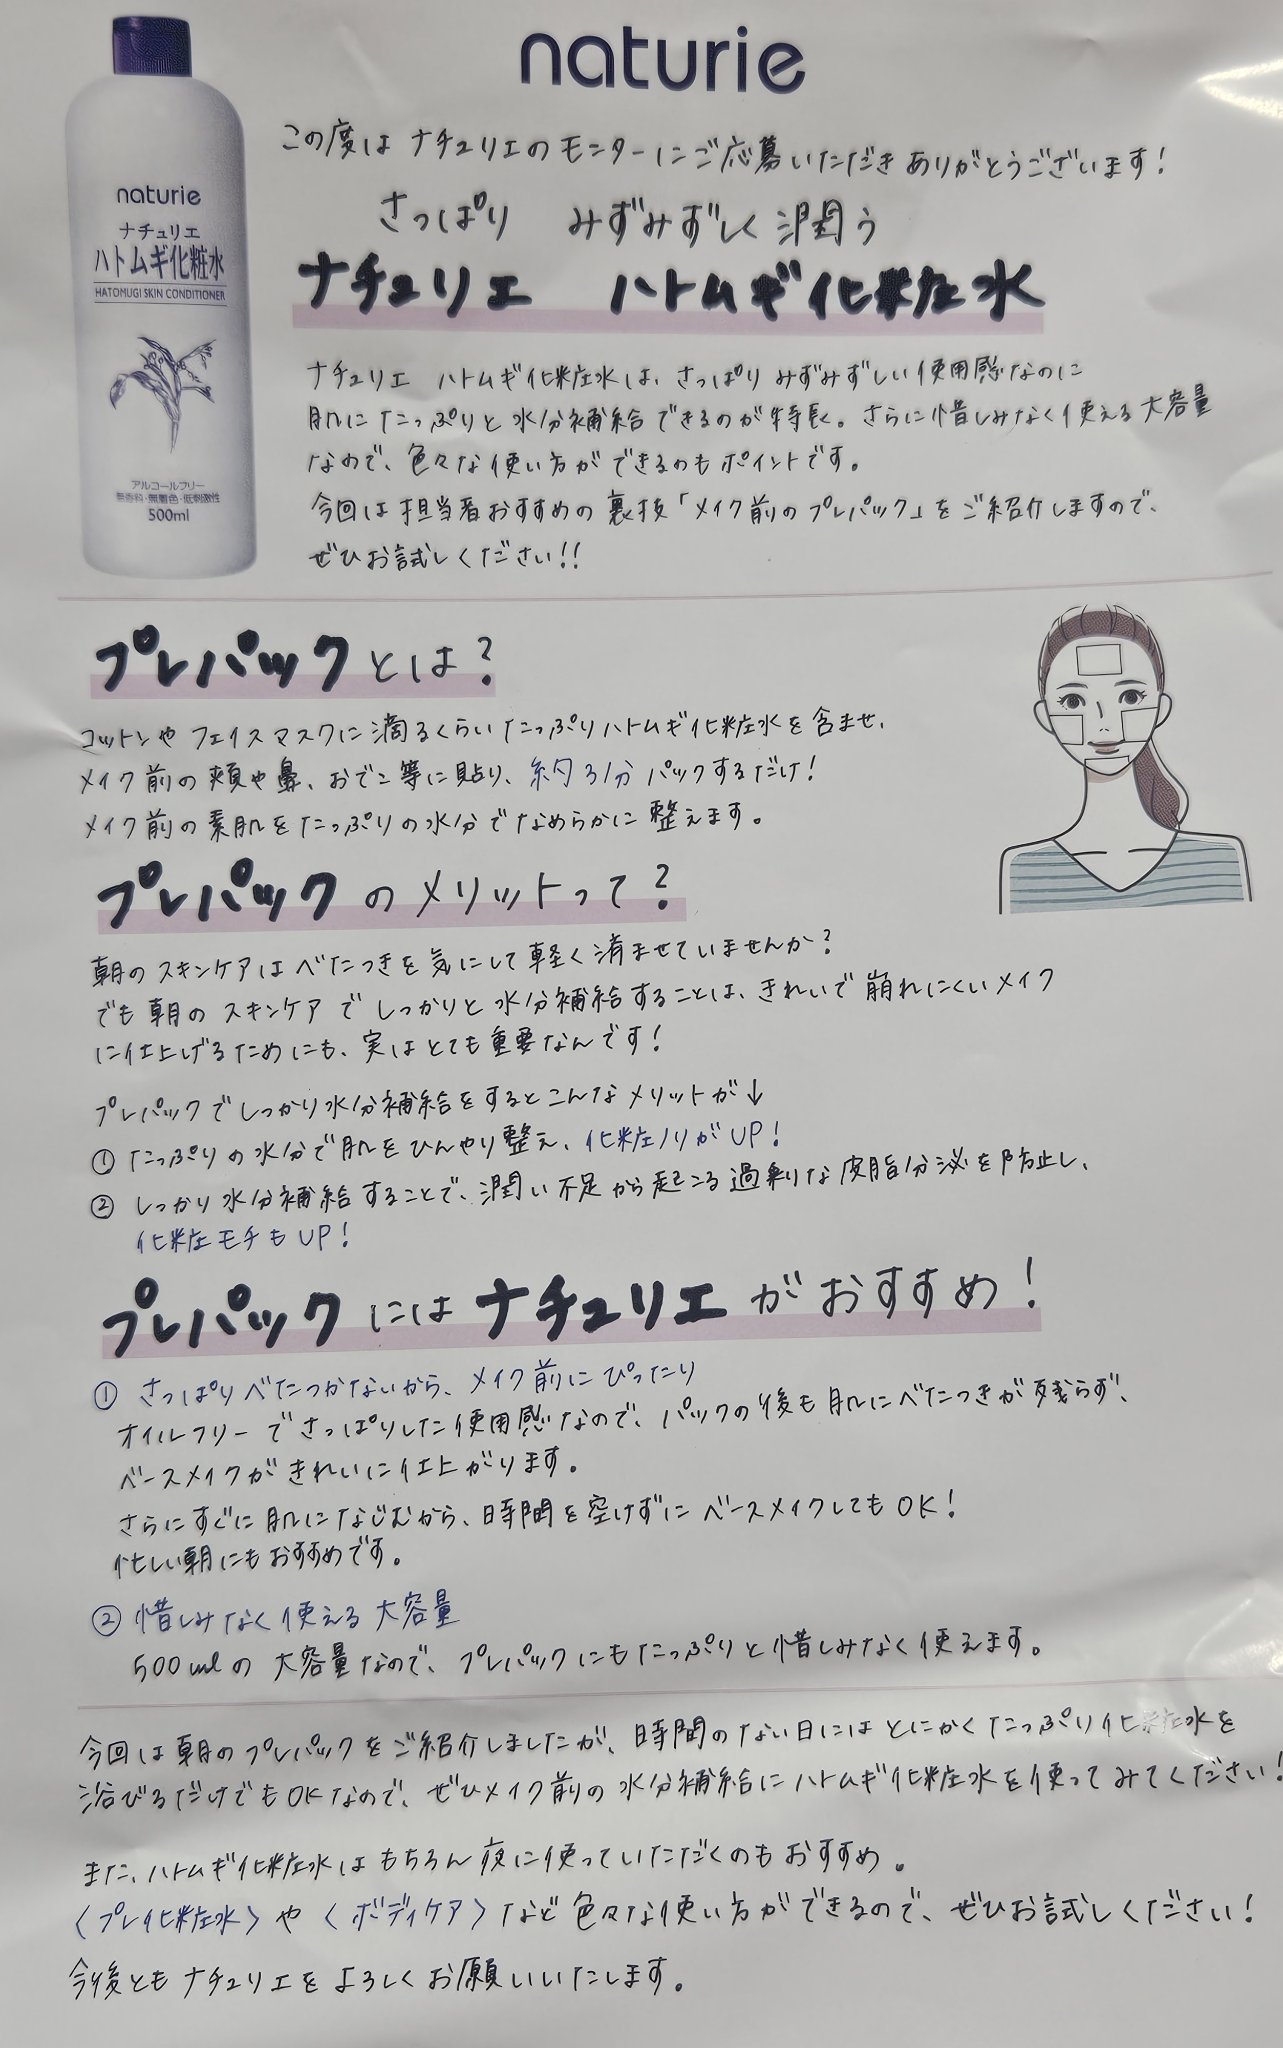 naturie
naturie
ナチュリエ
ハトムギ化粧水
HATOMUGI SKIN CONDITIONER
アルコールフリー
無香料・無着色・低刺激性
500ml
この度はナチュリエのモニターにご応募いただきありがとうございます!
さっぱり みずみずしく潤う
ナチュリエ ハトムギ化粧水
ナチュリエ ハトムギ化粧水は、さっぱりみずみずしい使用感なのに
肌にたっぷりと水分補給できるのが特長。さらに惜しみなく使える大容量
なので、色々な使い方ができるのもポイントです。
今回は担当者おすすめの裏技「メイク前のプレパック」をご紹介しますので、
ぜひお試しください!!
プレパックとは?
コットンやフェイスマスクに滴るくらいたっぷりハトムギ化粧水を含ませ、
メイク前の頬や鼻、おでこ等に貼り、約3分パックするだけ!
メイク前の素肌をたっぷりの水分でなめらかに整えます。
プレパックのメリットって?
朝のスキンケアはべたつきを気にして軽く済ませていませんか?
でも朝のスキンケアでしっかりと水分補給することは、きれいで崩れにくいメイク
に仕上げるためにも、実はとても重要なんです!
プレパックでしっかり水分補給をするとこんなメリットが↓
① たっぷりの水分で肌をひんやり整え、化粧ノリがUP!
② しっかり水分補給することで、潤い不足から起こる過剰な皮脂分泌を防止し、
化粧モチもUP!
プレパックにはナチュリエがおすすめ!
① さっぱりべたつかないから、メイク前にぴったり
オイルフリーでさっぱりした使用感なので、パックの後も肌にべたつきが残らず、
ベースメイクがきれいに仕上がります。
さらにすぐに肌になじむから、時間を空けずにベースメイクしてもOK!
忙しい朝にもおすすめです。
② 惜しみなく使える大容量
500mlの大容量なので、プレパックにもたっぷりと惜しみなく使えます。
今回は朝のプレパックをご紹介しましたが、時間のない日にはとにかくたっぷり化粧水を
浴びるだけでもOKなので、ぜひメイク前の水分補給にハトムギ化粧水を使ってみてください!
また、ハトムギ化粧水はもちろん夜に使っていただくのもおすすめ。
〈プレ化粧水〉や〈ボディケア〉など色々な使い方ができるので、ぜひお試しください!
今後ともナチュリエをよろしくお願いいたします。